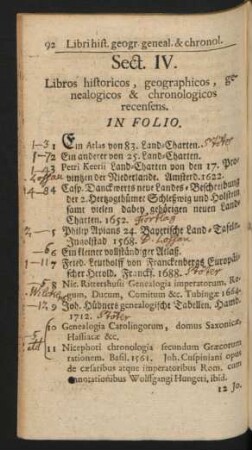 92 Libri hist. geogr. geneal. & chronol.
Sect. IV.
Libros historicos, geographicos, ge-
nealogicos & chronologicos
recensens.
IN FOLIO.
1 Ein Atlas von 83. Land-Charten.
2 Ein anderer von 25. Land-Charten.
3 Petri Keerii Land-Charten von den 17. Pro-
vintzen der Niederlande. Amsterd. 1622.
4 Casp. Danckwerts neue Landes-Beschreibung
der 2. Hertzogthümer Schleßwig und Holstein
samt vielen dabey gehörigen neuen Land-
Charten. 1652.
5 Philip Apians 24. Bayerische Land-Tafeln
Ingolstad 1568.
6 Ein kleiner vollständiger Atlaß.
7 Fried. Leutholff von Franckenbergs Europäi-
scher Herold. Franckf. 1688. Stöter
8 Nic. Rittershusii Genealogia imperatorum, Re-
gum, Ducum, Comitum &c. Tubingæ 1664.
9 Joh. Hübners genealogische Tabellen. Hamb.
1712. Stöter
10 Genealogia Carolingorum, domus Saxonicæ
Hassiacæ &c.
11 Nicephori chronologia secundum Græcorum
rationem. Basil. 1561. Joh. Cuspiniani opus
de cæsaribus atque imperatoribus Rom. cum
annotationibus Wolffgangi Hungeri, ibid.
12 Jo.